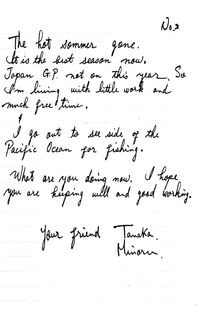 No.2
The hot sommer gone.
It is the best season now.
Japan G.P. not on this year. So
I'm living with little work and
much free time.
I go out to see side of the
Pacific Ocean for fishing.
What are you doing now. I hope
you are keeping well and good working.
Your friend Tanaka
Minoru